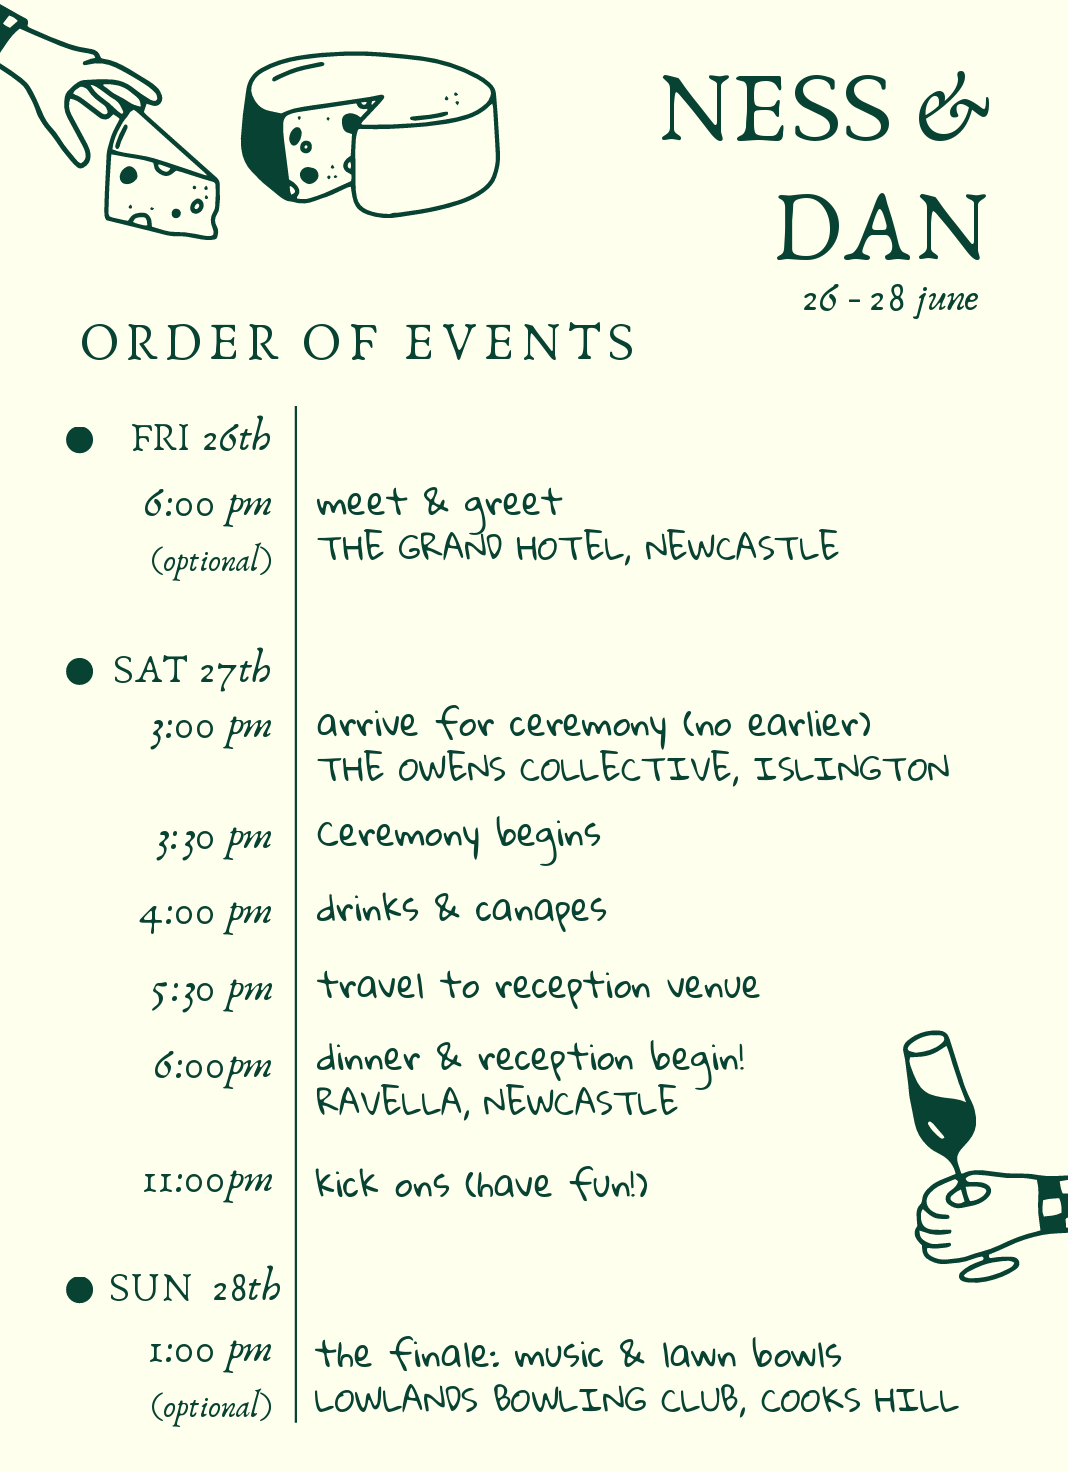 NESS &
DAN
26 - 28 june
ORDER OF EVENTS
FRI 26th
6:00 pm
(optional)
meet & greet
THE GRAND HOTEL, NEWCASTLE
SAT 27th
3:00 pm
arrive for ceremony (no earlier)
THE OWENS COLLECTIVE, ISLINGTON
3:30 pm
Ceremony begins
4:00 pm
drinks & canapes
5:30 pm
travel to reception venue
6:00pm
dinner & reception begin!
RAVELLA, NEWCASTLE
11:00pm
kick ons (have fun!)
SUN 28th
1:00 pm
(optional)
the finale: music & lawn bowls
LOWLANDS BOWLING CLUB, COOKS HILL